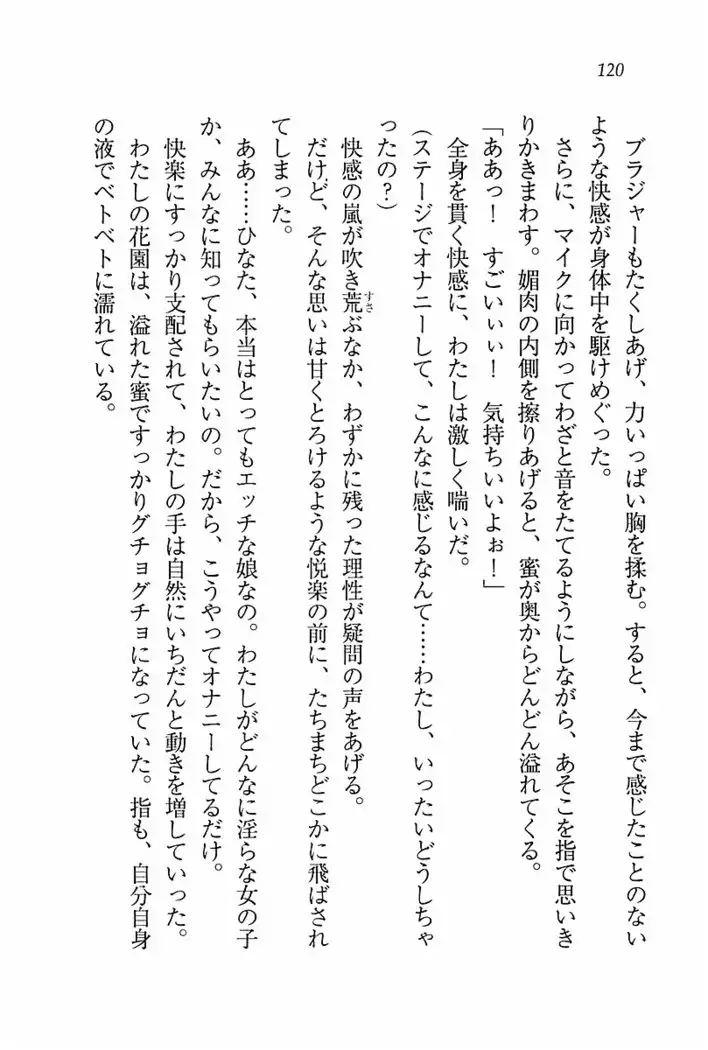 120
ブラジャーもたくしあげ、力いっぱい胸を揉む。すると、今まで感じたことのない
ような快感が身体中を駆けめぐった。
さらに、マイクに向かってわざと音をたてるようにしながら、あそこを指で思いき
りかきまわす。媚肉の内側を擦りあげると、蜜が奥からどんどん溢れてくる。
「ああっ！　すごいぃぃ！　気持ちいいよぉ！」
全身を貫く快感に、わたしは激しく喘いだ。
(ステージでオナニーして、こんなに感じるなんて……わたし、いったいどうしちゃ
ったの？)
快感の嵐が吹き荒すさぶなか、わずかに残った理性が疑問の声をあげる。
だけど、そんな思いは甘くとろけるような悦楽の前に、たちまちどこかに飛ばされ
てしまった。
ああ……ひなた、本当はとってもエッチな娘なの。わたしがどんなに淫らな女の子
か、みんなに知ってもらいたいの。だから、こうやってオナニーしてるだけ。
快楽にすっかり支配されて、わたしの手は自然にいちだんと動きを増していった。
わたしの花園は、溢れた蜜ですっかりグチョグチョになっていた。指も、自分自身
の液でベトベトに濡れている。